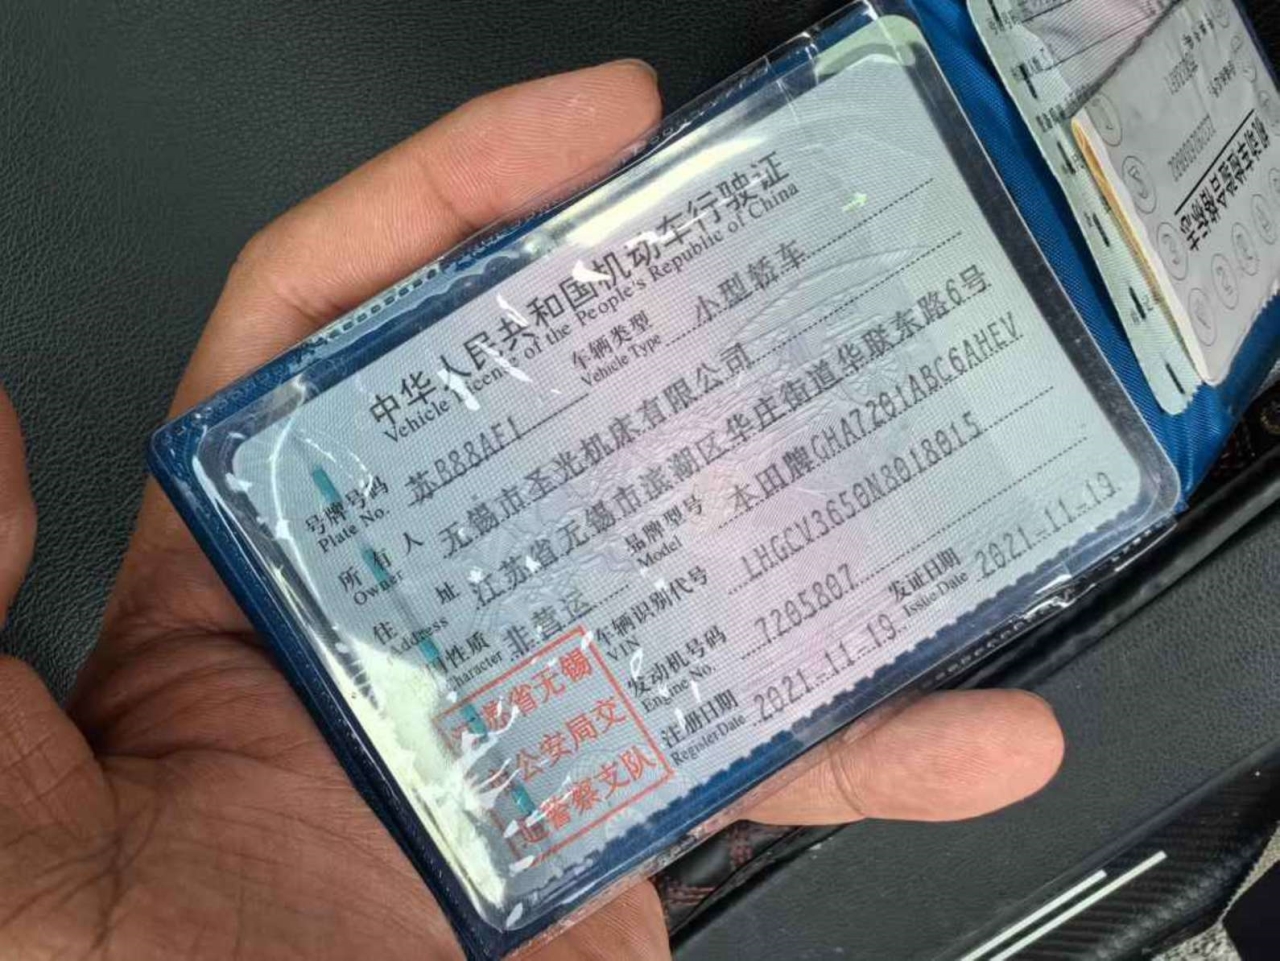 中华人民共和国机动车行驶证
Vehicle License of the People's Republic of China
号牌号码 苏B88AF1 车辆类型 小型轿车
Plate No. Vehicle Type
所有人 无锡市圣光机床有限公司
Owner
住址 江苏省无锡市滨湖区华庄街道华联东路6号
Address
性质 非营运 品牌型号 本田牌GHA7201ABC6AHEV
Character Model
车辆识别代号 LHGCV3650N8018015
VIN
发动机号码 7205807
Engine No.
注册日期 2021-11-19 发证日期 2021-11-19
Register Date Issue Date
省无锡
公安局交
警察支队